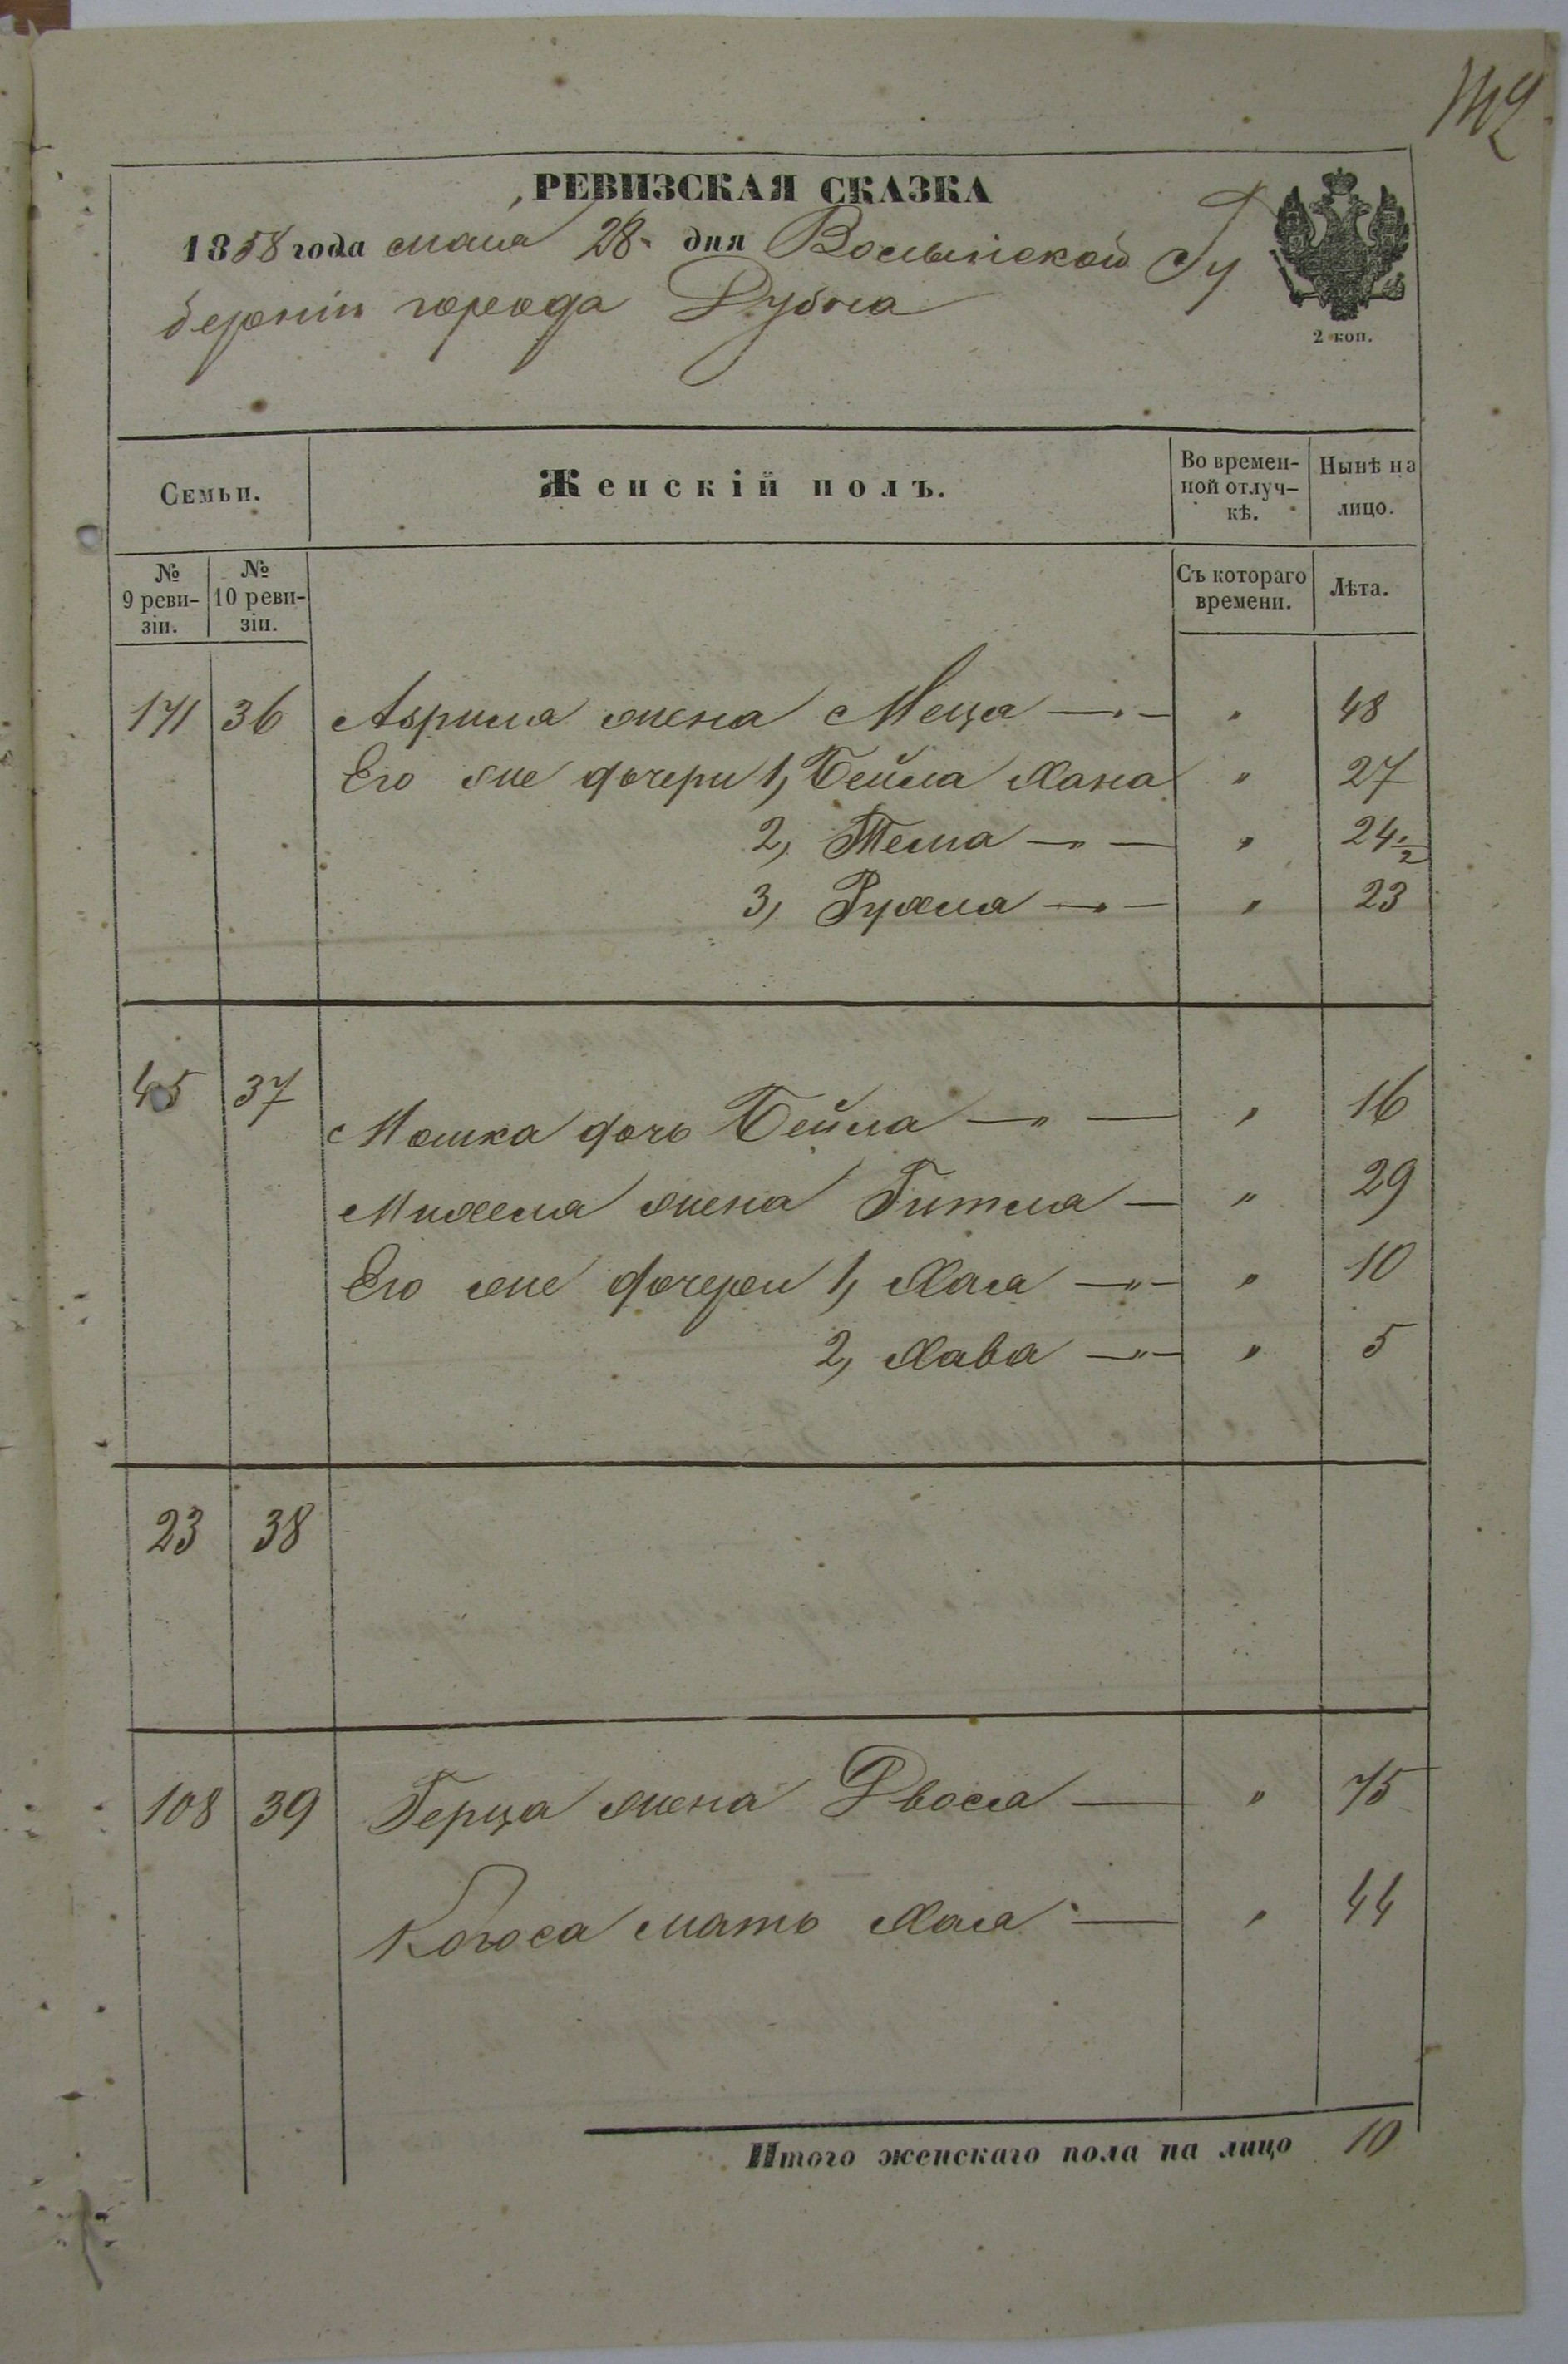 142
РЕВИЗСКАЯ СКАЗКА
1858 года мая 28 дня Волынской Гу
берніи города Дубна
2 коп.
Семьи.
Женскій полъ.
Во времен-
ной отлуч-
кѣ.
Нынѣ на
лицо.
№
9 реви-
зіи.
№
10 реви-
зіи.
Съ котораго
времени.
Лѣта.
171 36 жена — " 48
Его же дочери 1, Бейла Хана " 27
2, Тема — " — " 24 1/2
3, Рухля — " — " 23
45 37
Мошка дочь Бейла — " — " 16
Михеля жена Гитля — " 29
Его же дочери 1, Хая — " — " 10
2, Хава — " — " 5
23 38
108 39 Герца жена Двося — " 75
мать Хая — " 44
Итого женскаго пола на лицо 10